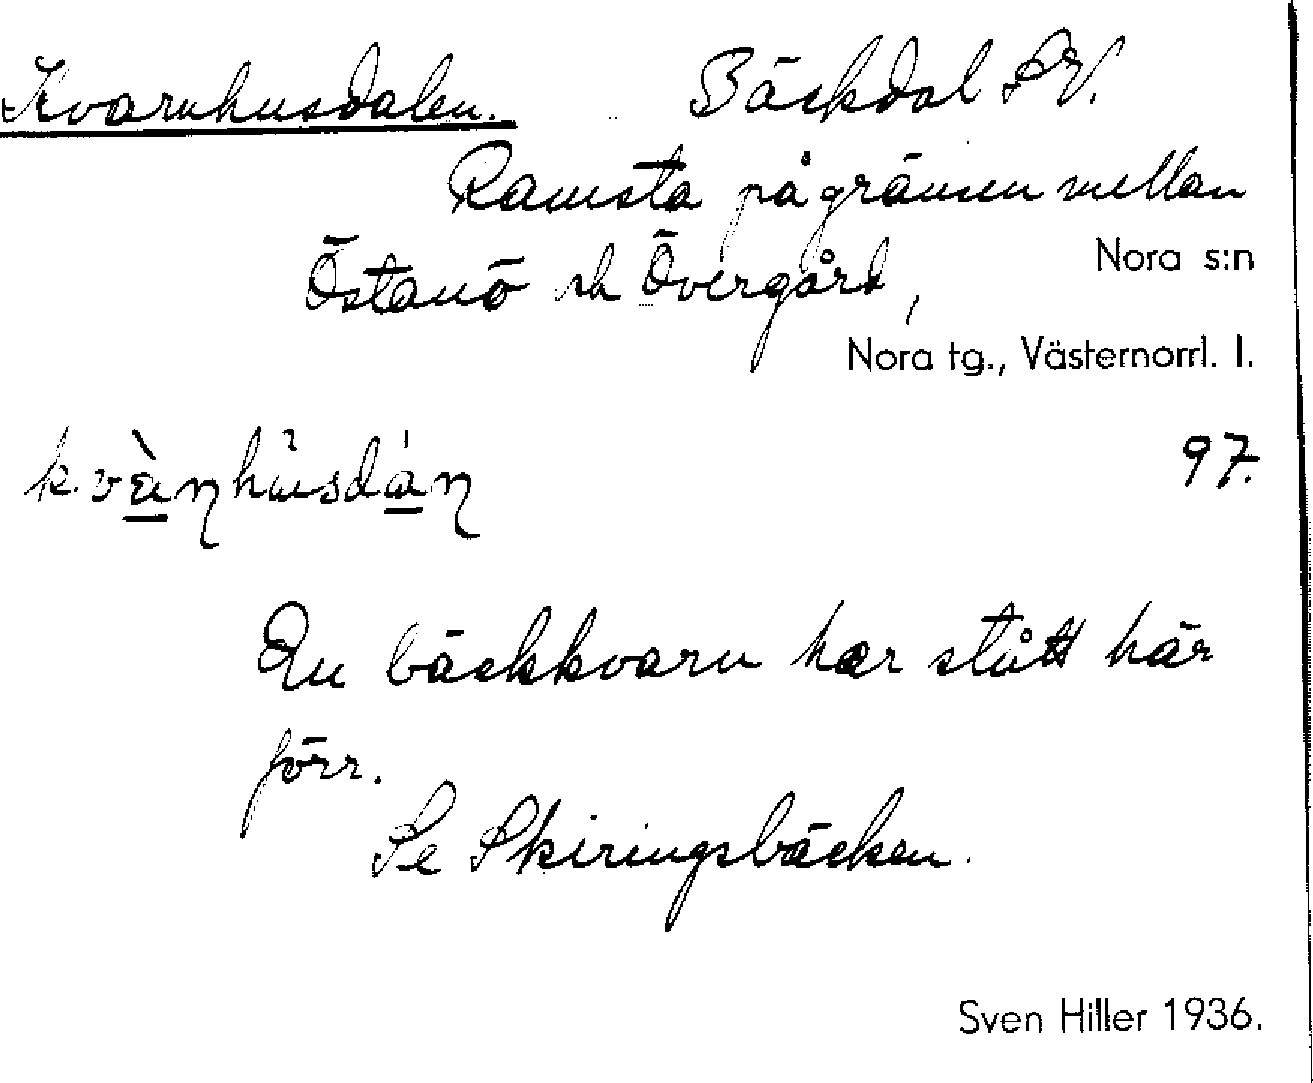 Kvarnhusdalen. Bäckdal SV.
Ramsta på gränsen mellan
Östanö och Övergård,
Nora s:n
Nora tg., Västernorrl. l.
97.
En bäckkvarn har stått här
förr.
Se Skiringsbäcken.
Sven Hiller 1936.